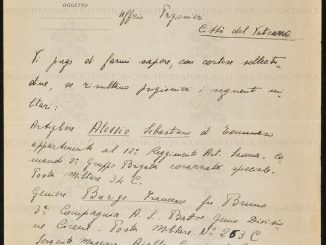 OGGETTO
Ufficio Prigionieri
Città del Vaticano
Vi prego di farmi sapere, con cortese sollecitu-
dine, se risultano prigionieri i seguenti mi-
litari:
Artigliere Alessio Sebastiano di Tommaso
appartenente al 12º Reggimento Art. Co-
mando 3º Gruppo Brigata corazzata speciale.
Posta Militare 34 C.
Geniere Burgo Francesco fu Bruno
3ª Compagnia A. L. Batt. Genio Divisio-
ne Cirene. Posta Militare Nº 263 C
Sergente Maggiore